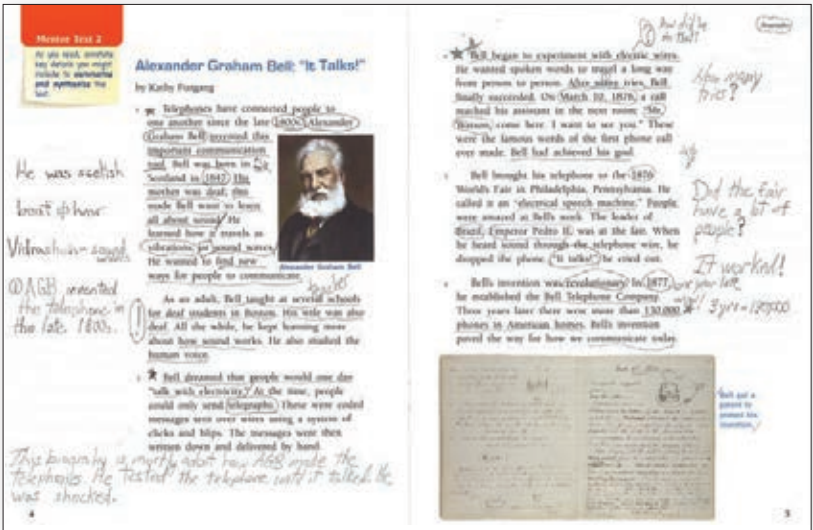 Mentor Text 2
As you read, annotate
key details you might
include to summarize
and synthesize the
text.
He was scotish
Vibrashun- sound
① AGB invented
the telephone in
the late 1800s.
Alexander Graham Bell: "It Talks!"
by Kathy Furgang
1 Telephones have connected people to
one another since the late 1800s. Alexander
Graham Bell invented this
important communication
tool. Bell was born in
Scotland in 1847. His
mother was deaf; this
made Bell want to learn
all about sound. He
learned how it travels as
vibrations, or sound waves.
He wanted to find new
ways for people to communicate.
Alexander Graham Bell
teacher
2 As an adult, Bell taught at several schools
for deaf students in Boston. His wife was also
deaf. All the while, he kept learning more
about how sound works. He also studied the
human voice.
3 Bell dreamed that people would one day
"talk with electricity." At the time, people
could only send telegraphs. These were coded
messages sent over wires using a system of
clicks and blips. The messages were then
written down and delivered by hand.
This biography is mostly about how AGB made the
telephones. He tested the telephone until it talked. He
was shocked.
4
How did he
do that?
4 Bell began to experiment with electric wires.
He wanted spoken words to travel a long way
from person to person. After many tries, Bell
finally succeeded. On March 10, 1876, a call
reached his assistant in the next room: "Mr.
Watson, come here. I want to see you." These
were the famous words of the first phone call
ever made. Bell had achieved his goal.
How many
tries?
5 Bell brought his telephone to the 1876
World's Fair in Philadelphia, Pennsylvania. He
called it an "electrical speech machine." People
were amazed at Bell's work. The leader of
Brazil, Emperor Pedro II, was at the fair. When
he heard sound through the telephone wire, he
dropped the phone. "It talks!" he cried out.
Did the fair
have a lot of
people?
It workd!
6 Bell's invention was revolutionary! In 1877,
he established the Bell Telephone Company.
Three years later there were more than 130,000
phones in American homes. Bell's invention
paved the way for how we communicate today.
one year later
Bell got a
patent to
protect his
invention.
5